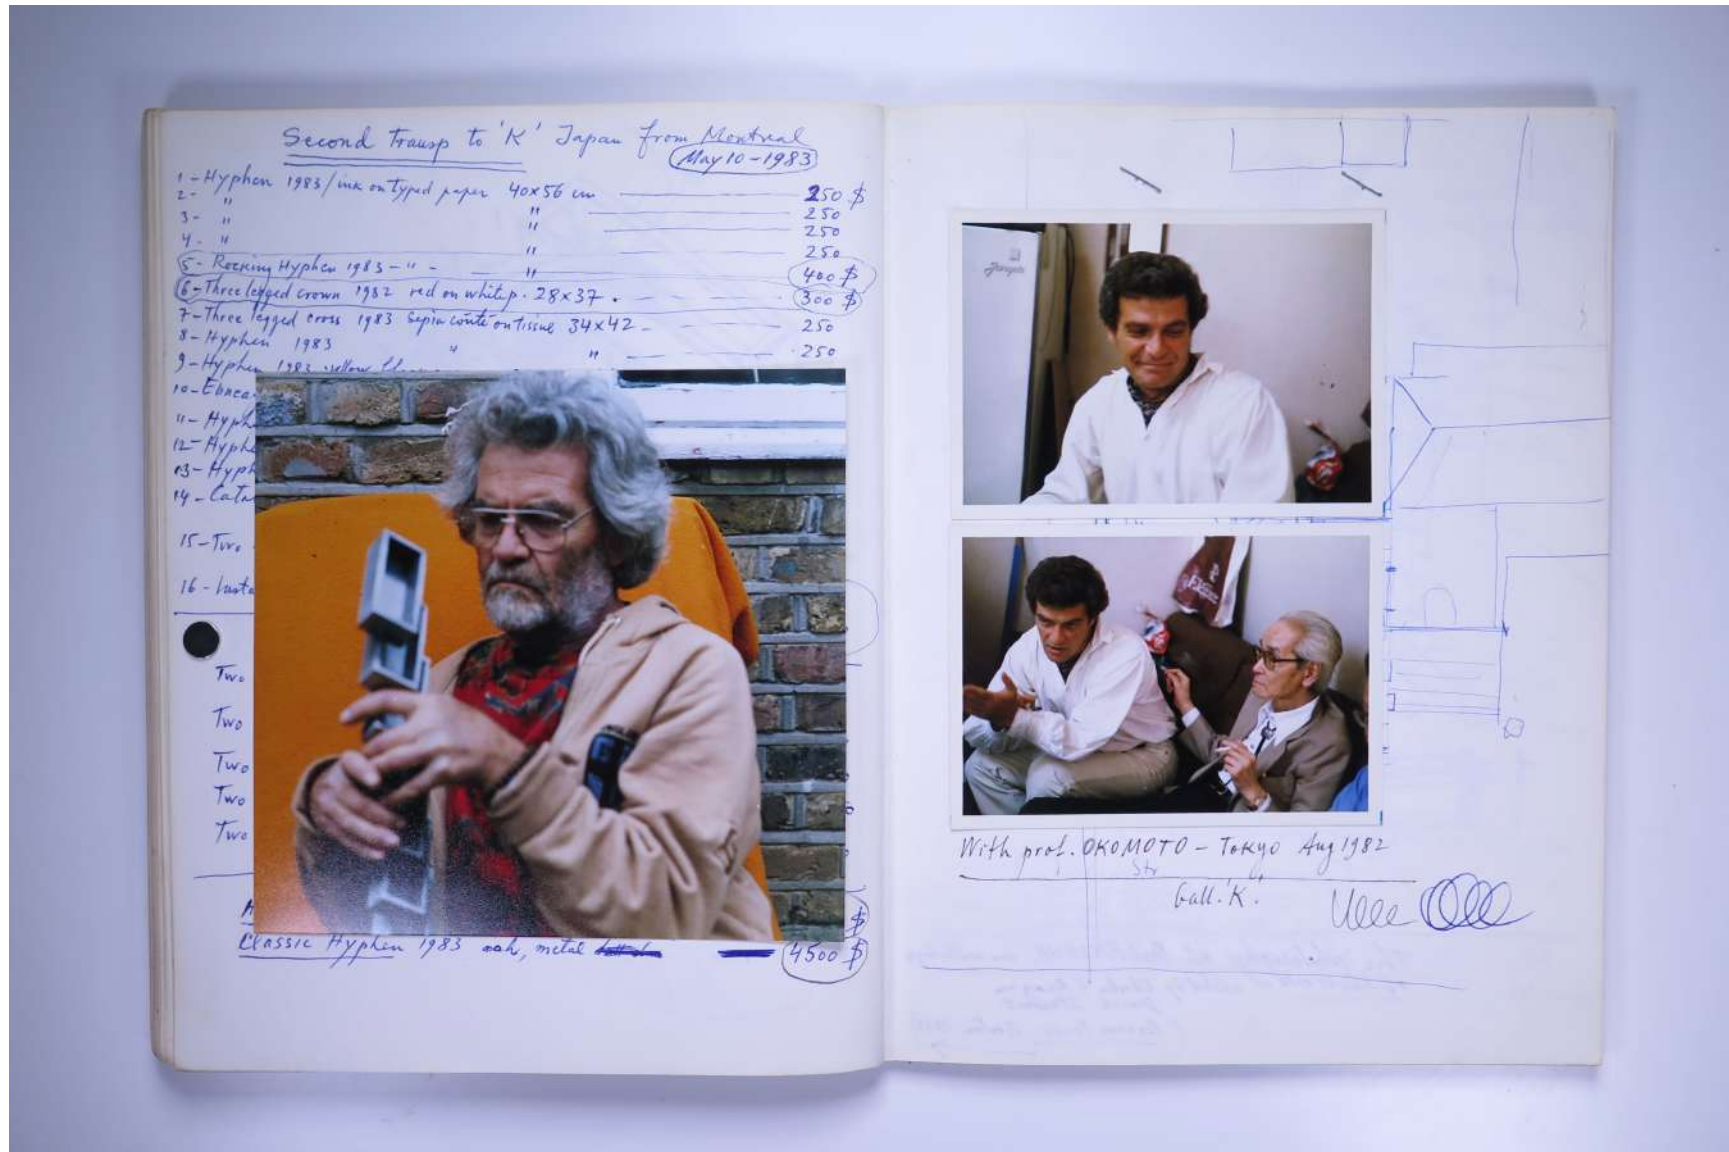 Second Transp to 'K' Japan from Montreal
May 10-1983
1-Hyphen 1983/ink on typed paper 40x56 cm 250 $
2- " " 250
3- " " 250
4- " " 250
5- Rocking Hyphen 1983 - " - " 400 $
6-Three legged crown 1982 red on white p. 28x37 . 300 $
7-Three legged cross 1983 Sepia conté on tissue 34x42 - 250
8-Hyphen 1983 " " 250
9-Hyphen 1983 yellow
10-
11- Hyph
12- Hyph
13- Hyph
14-
15-Two
16-
Two
Two
Two
Two
Two
$
Classic Hyphen 1983 ash, metal 4500 $
With prof. OKOMOTO - Tokyo Aug 1982
Gall. 'K'.